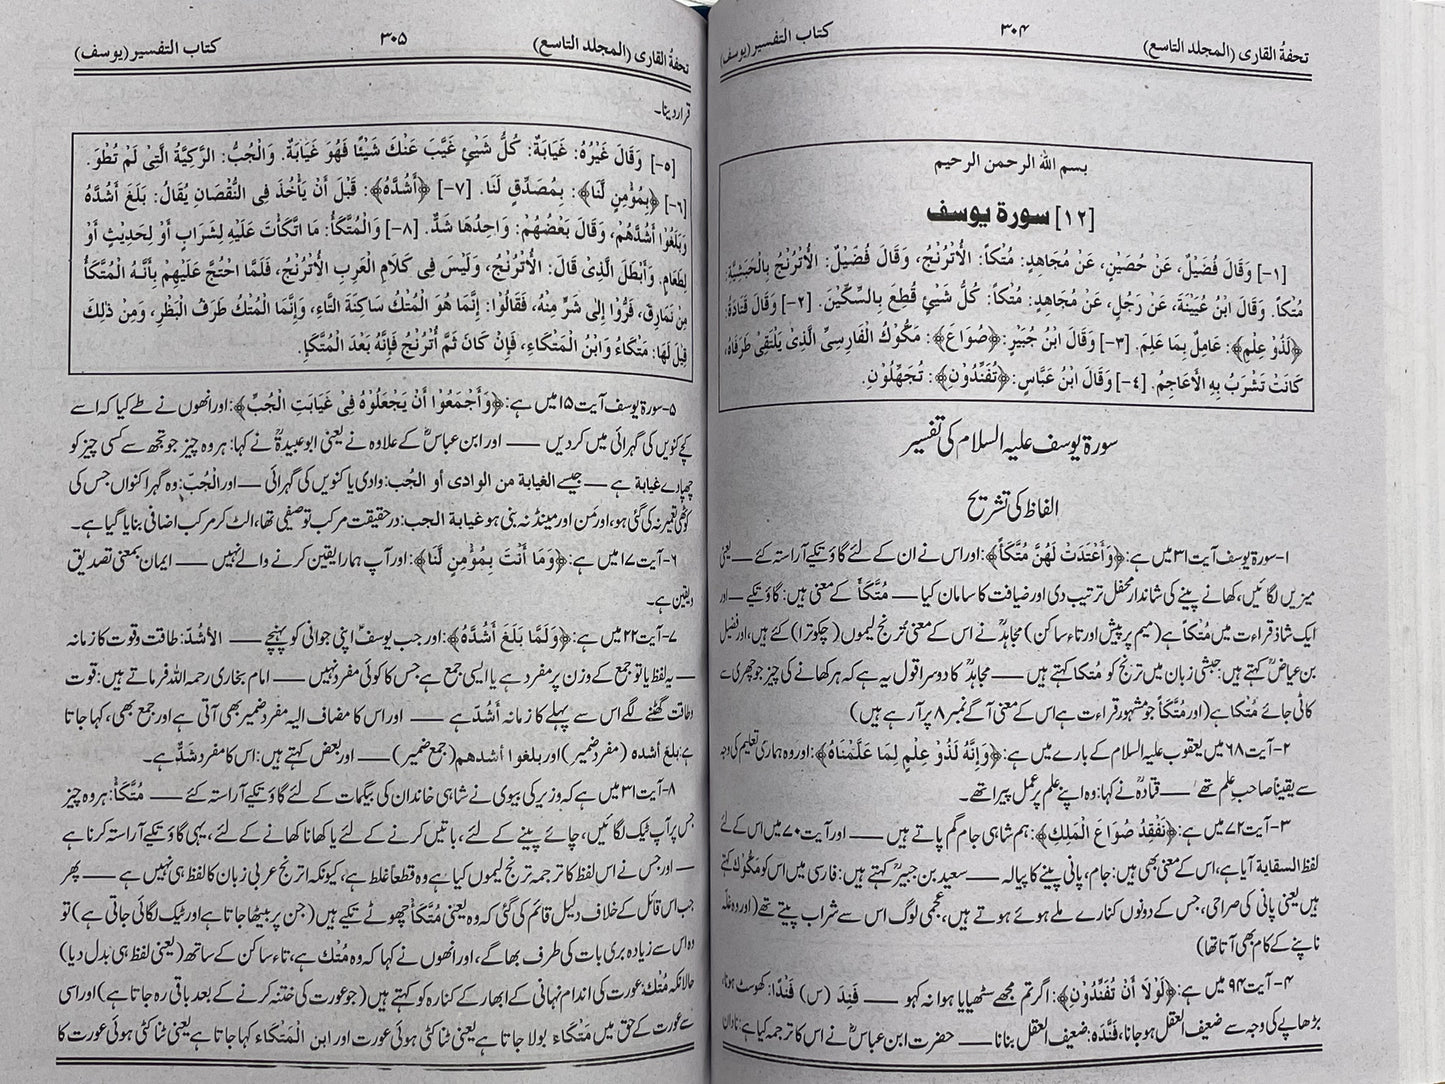 تحفۃ القاری (المجلد التاسع)
۳۰۴
کتاب التفسیر (یوسف)
بسم الله الرحمن الرحيم
[۱۲] سورة يوسف
[۱-] وَقَالَ فُضَيْلٌ، عَنْ حُصَيْنٍ، عَنْ مُجَاهِدٍ: مُتْكَأً: الْأُتْرُنْجُ، وَقَالَ فُضَيْلٌ: الْأُتْرُنْجُ بِالْحَبَشِيَّةِ:
مُتْكًا. وَقَالَ ابْنُ عُيَيْنَةَ، عَنْ رَجُلٍ، عَنْ مُجَاهِدٍ: مُتْكًا: كُلُّ شَيْئٍ قُطِعَ بِالسِّكِّيْنِ. [۲-] وَقَالَ قَتَادَةُ:
﴿لَذُو عِلْمٍ﴾: عَامِلٌ بِمَا عَلِمَ. [۳-] وَقَالَ ابْنُ جُبَيْرٍ: ﴿صُوَاعَ﴾: مَكُّوكُ الْفَارِسِيِّ الَّذِيْ يَلْتَقِيْ طَرَفَاهُ،
كَانَتْ تَشْرَبُ بِهِ الْأَعَاجِمُ. [٤-] وَقَالَ ابْنُ عَبَّاسٍ: ﴿تُفَنِّدُوْنِ﴾: تُجَهِّلُوْنِ.
سورۃ یوسف علیہ السلام کی تفسیر
الفاظ کی تشریح
۱- سورۃ یوسف آیت ۳۱ میں ہے: ﴿وَأَعْتَدَتْ لَهُنَّ مُتَّكَأً﴾: اور اس نے ان کے لئے گاؤ تکیے آراستہ کئے — یعنی
میزیں لگائیں، کھانے پینے کی شاندار محفل ترتیب دی اور ضیافت کا سامان کیا — مُتَّكَأً کے معنی ہیں: گاؤ تکیے — اور
ایک شاذ قراءت میں مُتْكاً ہے (میم پر پیش اور تاء ساکن) مجاہدؒ نے اس کے معنی ترنج لیموں (چکوترا) کئے ہیں، اور فضیل
بن عیاضؒ کہتے ہیں: حبشی زبان میں ترنج کو مُتكا کہتے ہیں — مجاہدؒ کا دوسرا قول یہ ہے کہ ہر کھانے کی چیز جو چھری سے
کاٹی جائے مُتكا ہے (اور مُتَّكَأً جو مشہور قراءت ہے اس کے معنی آگے نمبر ۸ پر آرہے ہیں)
۲- آیت ۶۸ میں یعقوب علیہ السلام کے بارے میں ہے: ﴿وَإِنَّهُ لَذُو عِلْمٍ لِمَا عَلَّمْنَاهُ﴾: اور وہ ہماری تعلیم کی وجہ
سے یقیناً صاحبِ علم تھے — قتادہؒ نے کہا: وہ اپنے علم پر عمل پیرا تھے۔
۳- آیت ۷۲ میں ہے: ﴿نَفْقِدُ صُوَاعَ الْمَلِكِ﴾: ہم شاہی جام گم پاتے ہیں — اور آیت ۷۰ میں اس کے لئے
لفظ السقاية آیا ہے، اس کے معنی بھی ہیں: جام، پانی پینے کا پیالہ — سعید بن جبیرؒ کہتے ہیں: فارسی میں اس کو مَكُّوك کہتے
ہیں یعنی پانی کی صراحی، جس کے دونوں کنارے ملے ہوئے ہوتے ہیں، عجمی لوگ اس سے شراب پیتے تھے (اور وہ غلہ
ناپنے کے کام بھی آتا تھا)
۴- آیت ۹۴ میں ہے: ﴿لَوْلَا أَنْ تُفَنِّدُوْنِ﴾: اگر تم مجھے سٹھیایا ہوا نہ کہو — فَنِدَ (س) فَنْدًا: کھوسٹ ہونا،
بڑھاپے کی وجہ سے ضعیف العقل ہو جانا، فَنَّدَه: ضعیف العقل بنانا — حضرت ابن عباسؓ نے اس کا ترجمہ کیا ہے: نادان
تحفۃ القاری (المجلد التاسع)
۳۰۵
کتاب التفسیر (یوسف)
قرار دینا۔
[۵-] وَقَالَ غَيْرُهُ: غَيَابَةٌ: كُلُّ شَيْئٍ غَيَّبَ عَنْكَ شَيْئًا فَهُوَ غَيَابَةٌ. وَالْجُبُّ: الرَّكِيَّةُ الَّتِيْ لَمْ تُطْوَ.
[۶-] ﴿بِمُؤْمِنٍ لَّنَا﴾: بِمُصَدِّقٍ لَنَا. [۷-] ﴿أَشُدَّهُ﴾: قَبْلَ أَنْ يَأْخُذَ فِي النُّقْصَانِ يُقَالُ: بَلَغَ أَشُدَّهُ
وَبَلَغُوْا أَشُدَّهُمْ، وَقَالَ بَعْضُهُمْ: وَاحِدُهَا شَدٌّ. [۸-] وَالْمُتَّكَأُ: مَا اتَّكَأْتَ عَلَيْهِ لِشَرَابٍ أَوْ لِحَدِيْثٍ أَوْ
لِطَعَامٍ. وَأَبْطَلَ الَّذِيْ قَالَ: الْأُتْرُنْجُ، وَلَيْسَ فِي كَلَامِ الْعَرَبِ الْأُتْرُنْجُ، فَلَمَّا احْتُجَّ عَلَيْهِمْ بِأَنَّهُ الْمُتَّكَأُ
مِنْ نَمَارِقَ، فَرُّوْا إِلٰى شَرٍّ مِنْهُ، فَقَالُوْا: إِنَّمَا هُوَ الْمُتْكُ سَاكِنَةَ التَّاءِ، وَإِنَّمَا الْمُتْكُ طَرَفُ الْبَظْرِ، وَمِنْ ذٰلِكَ
قِيْلَ لَهَا: مَتْكَاءُ وَابْنُ الْمَتْكَاءِ، فَإِنْ كَانَ ثَمَّ أُتْرُنْجٌ فَإِنَّهُ بَعْدَ الْمُتَّكَإِ.
۵- سورۃ یوسف آیت ۱۵ میں ہے: ﴿وَأَجْمَعُوْا أَنْ يَجْعَلُوْهُ فِيْ غَيَابَتِ الْجُبِّ﴾: اور انھوں نے طے کیا کہ اسے
کچے کنویں کی گہرائی میں کردیں — اور ابن عباسؓ کے علاوہ نے یعنی ابو عبیدۃؒ نے کہا: ہر وہ چیز جو تجھ سے کسی چیز کو
چھپادے غیابة ہے — جیسے الغيابة من الوادي أو الجُب: وادی یا کنویں کی گہرائی — اور الْجُبّ: وہ گہرا کنواں جس کی
کوٹھی تعمیر نہ کی گئی ہو، اور مَن اور مینڈ نہ بنی ہو غيابة الجب: در حقیقت مرکب توصیفی تھا، الٹ کر مرکب اضافی بنایا گیا ہے۔
۶- آیت ۱۷ میں ہے: ﴿وَمَا أَنْتَ بِمُؤْمِنٍ لَّنَا﴾: اور آپ ہمارا یقین کرنے والے نہیں — ایمان بمعنی تصدیق
ویقین ہے۔
۷- آیت ۲۲ میں ہے: ﴿وَلَمَّا بَلَغَ أَشُدَّهُ﴾: اور جب یوسفؑ اپنی جوانی کو پہنچے — الأشُدّ: طاقت وقوت کا زمانہ
— یہ لفظ یا تو جمع کے وزن پر مفرد ہے یا ایسی جمع ہے جس کا کوئی مفرد نہیں — امام بخاری رحمہ اللہ فرماتے ہیں: قوت
وطاقت گھٹنے لگے اس سے پہلے کا زمانہ أَشُدّ ہے — اور اس کا مضاف الیہ مفرد ضمیر بھی آتی ہے اور جمع بھی، کہا جاتا
ہے: بلغ أشده (مفرد ضمیر) اور بلغوا أشدهم (جمع ضمیر) — اور بعض کہتے ہیں: اس کا مفرد شَدٌّ ہے۔
۸- آیت ۳۱ میں ہے کہ وزیر کی بیوی نے شاہی خاندان کی بیگمات کے لئے گاؤ تکیے آراستہ کئے — مُتَّكَأ: ہر وہ چیز
جس پر آپ ٹیک لگائیں، چائے پینے کے لئے، باتیں کرنے کے لئے یا کھانا کھانے کے لئے، یہی گاؤ تکیے آراستہ کرنا ہے
— اور جس نے اس لفظ کا ترجمہ ترنج لیموں کیا ہے وہ قطعاً غلط ہے، کیونکہ اترنج عربی زبان کا لفظ ہی نہیں ہے — پھر
جب اس قائل کے خلاف دلیل قائم کی گئی کہ وہ یعنی مُتَّكَأ چھوٹے تکیے ہیں (جن پر بیٹھا جاتا ہے اور ٹیک لگائی جاتی ہے) تو
وہ اس سے زیادہ بری بات کی طرف بھاگے، اور انھوں نے کہا کہ وہ مُتْك ہے، تاء ساکن کے ساتھ (یعنی لفظ ہی بدل دیا)
حالانکہ مُتْك: عورت کی اندام نہانی کے ابھار کے کنارہ کو کہتے ہیں (جو عورت کی ختنہ کرنے کے بعد باقی رہ جاتا ہے) اور اسی
سے عورت کے حق میں مَتْكاء بولا جاتا ہے یعنی ٹنا کٹی ہوئی عورت اور ابن الْمَتْكاء کہا جاتا ہے یعنی ٹنا کٹی ہوئی عورت کا